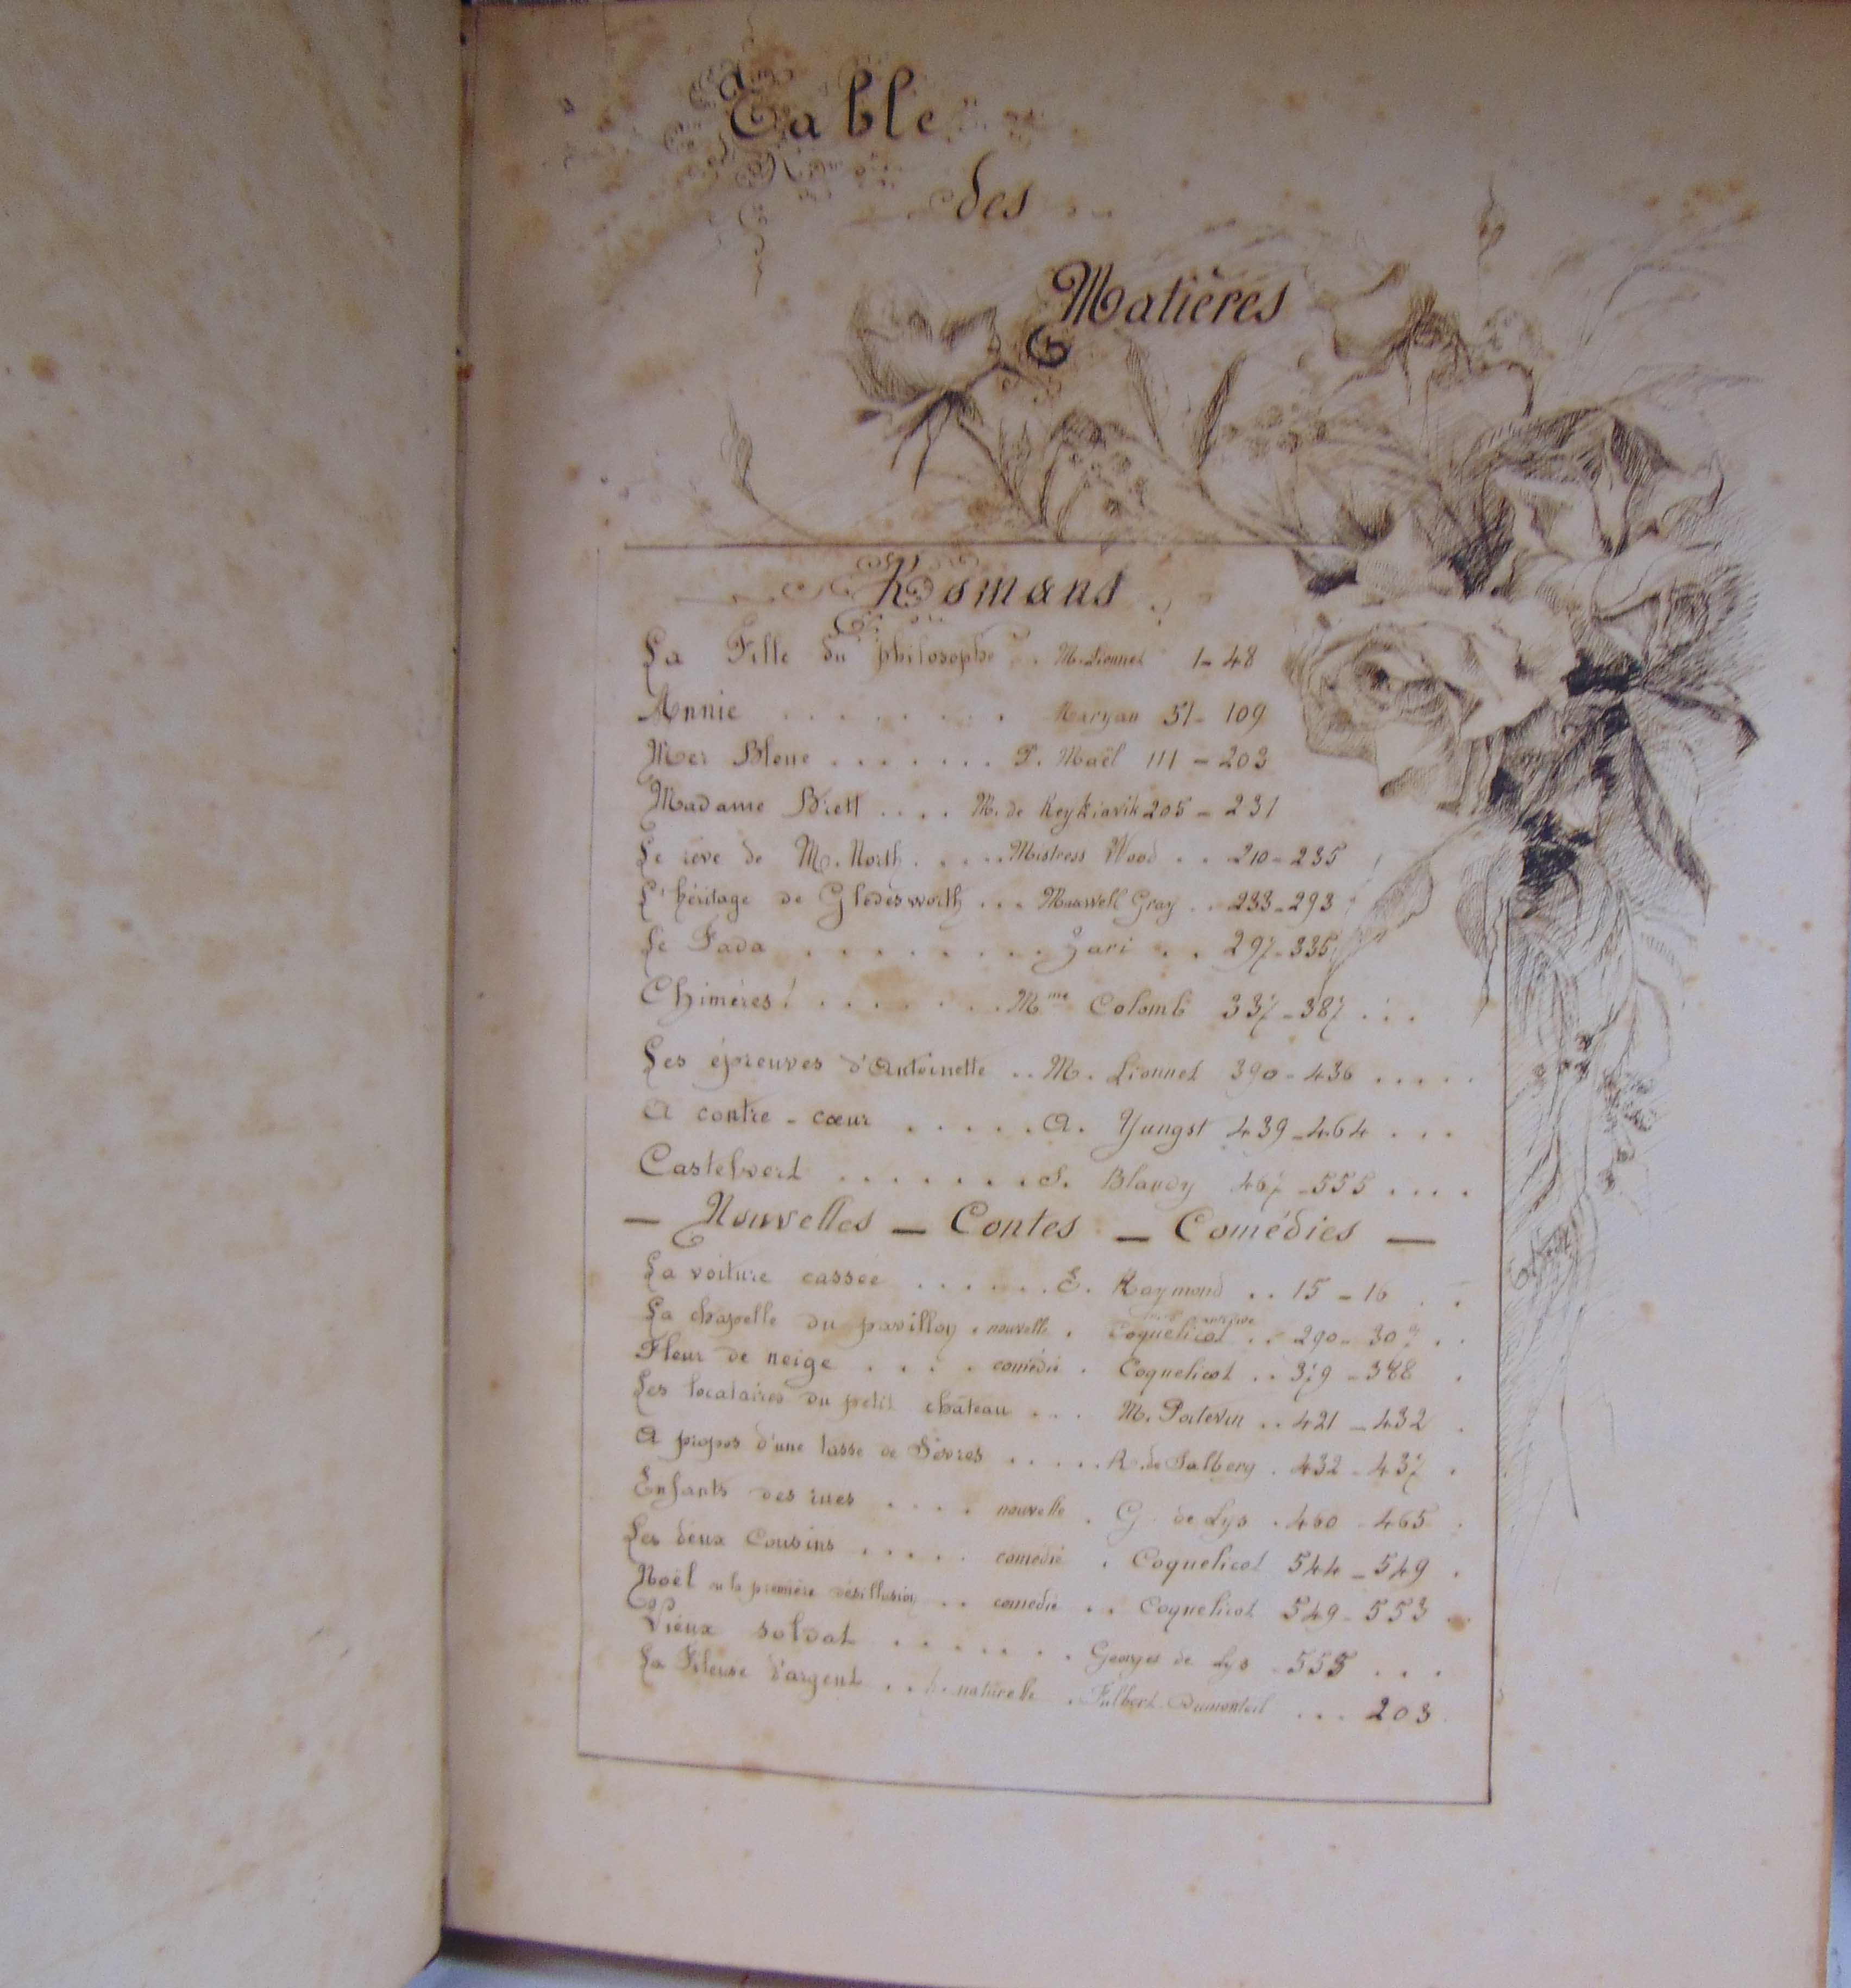 Table
des
Matières
Romans
La Fille du philosophe . . M. Lionnet 1 - 48
Annie . . . . . . . . . Maryan 51 - 109
Mer Bleue . . . . . . . P. Maël 111 - 203
Madame Brett . . . . M. de Keykiavik 205 - 231
Le rêve de M. North . . . . . Mistress Wood . . 210 - 235
L'héritage de Gledesworth . . . Maxwell Gray . . 233 - 293
Le Fada . . . . . . . . . Jari . . 297 - 335
Chimères ! . . . . . . . Mme Colomb 337 - 387 . . .
Les épreuves d'Antoinette . . M. Lionnet 390 - 436 . . . . .
A contre - cœur . . . . . A. Yungst 439 - 464 . . .
Castelvert . . . . . . . S. Blandy 467 - 555 . . . .
— Nouvelles — Contes — Comédies —
La voiture cassée . . . . . . E. Raymond . . 15 - 16 . .
La chapelle du pavillon . nouvelle . Coquelicot . . 290 - . .
Fleur de neige . . . . comédie . Coquelicot . . 379 - 388 .
Les locataires du petit château . . . M. Poitevin . . 421 - 432 .
A propos d'une tasse de Sèvres . . . . . R. de Salberg . 432 - 437 .
Enfants des rues . . . . nouvelle . G. de Lys . 460 - 465 .
Les deux Cousins . . . . . comédie . Coquelicot 544 - 549 .
Noël ou la première désillusion . . comédie . . Coquelicot 549 - 553 .
Vieux soldat . . . . . . . Georges de Lys . 555 . . .
La Fileuse d'argent . . . naturelle . Fulbert Dumonteil . . . 203 .